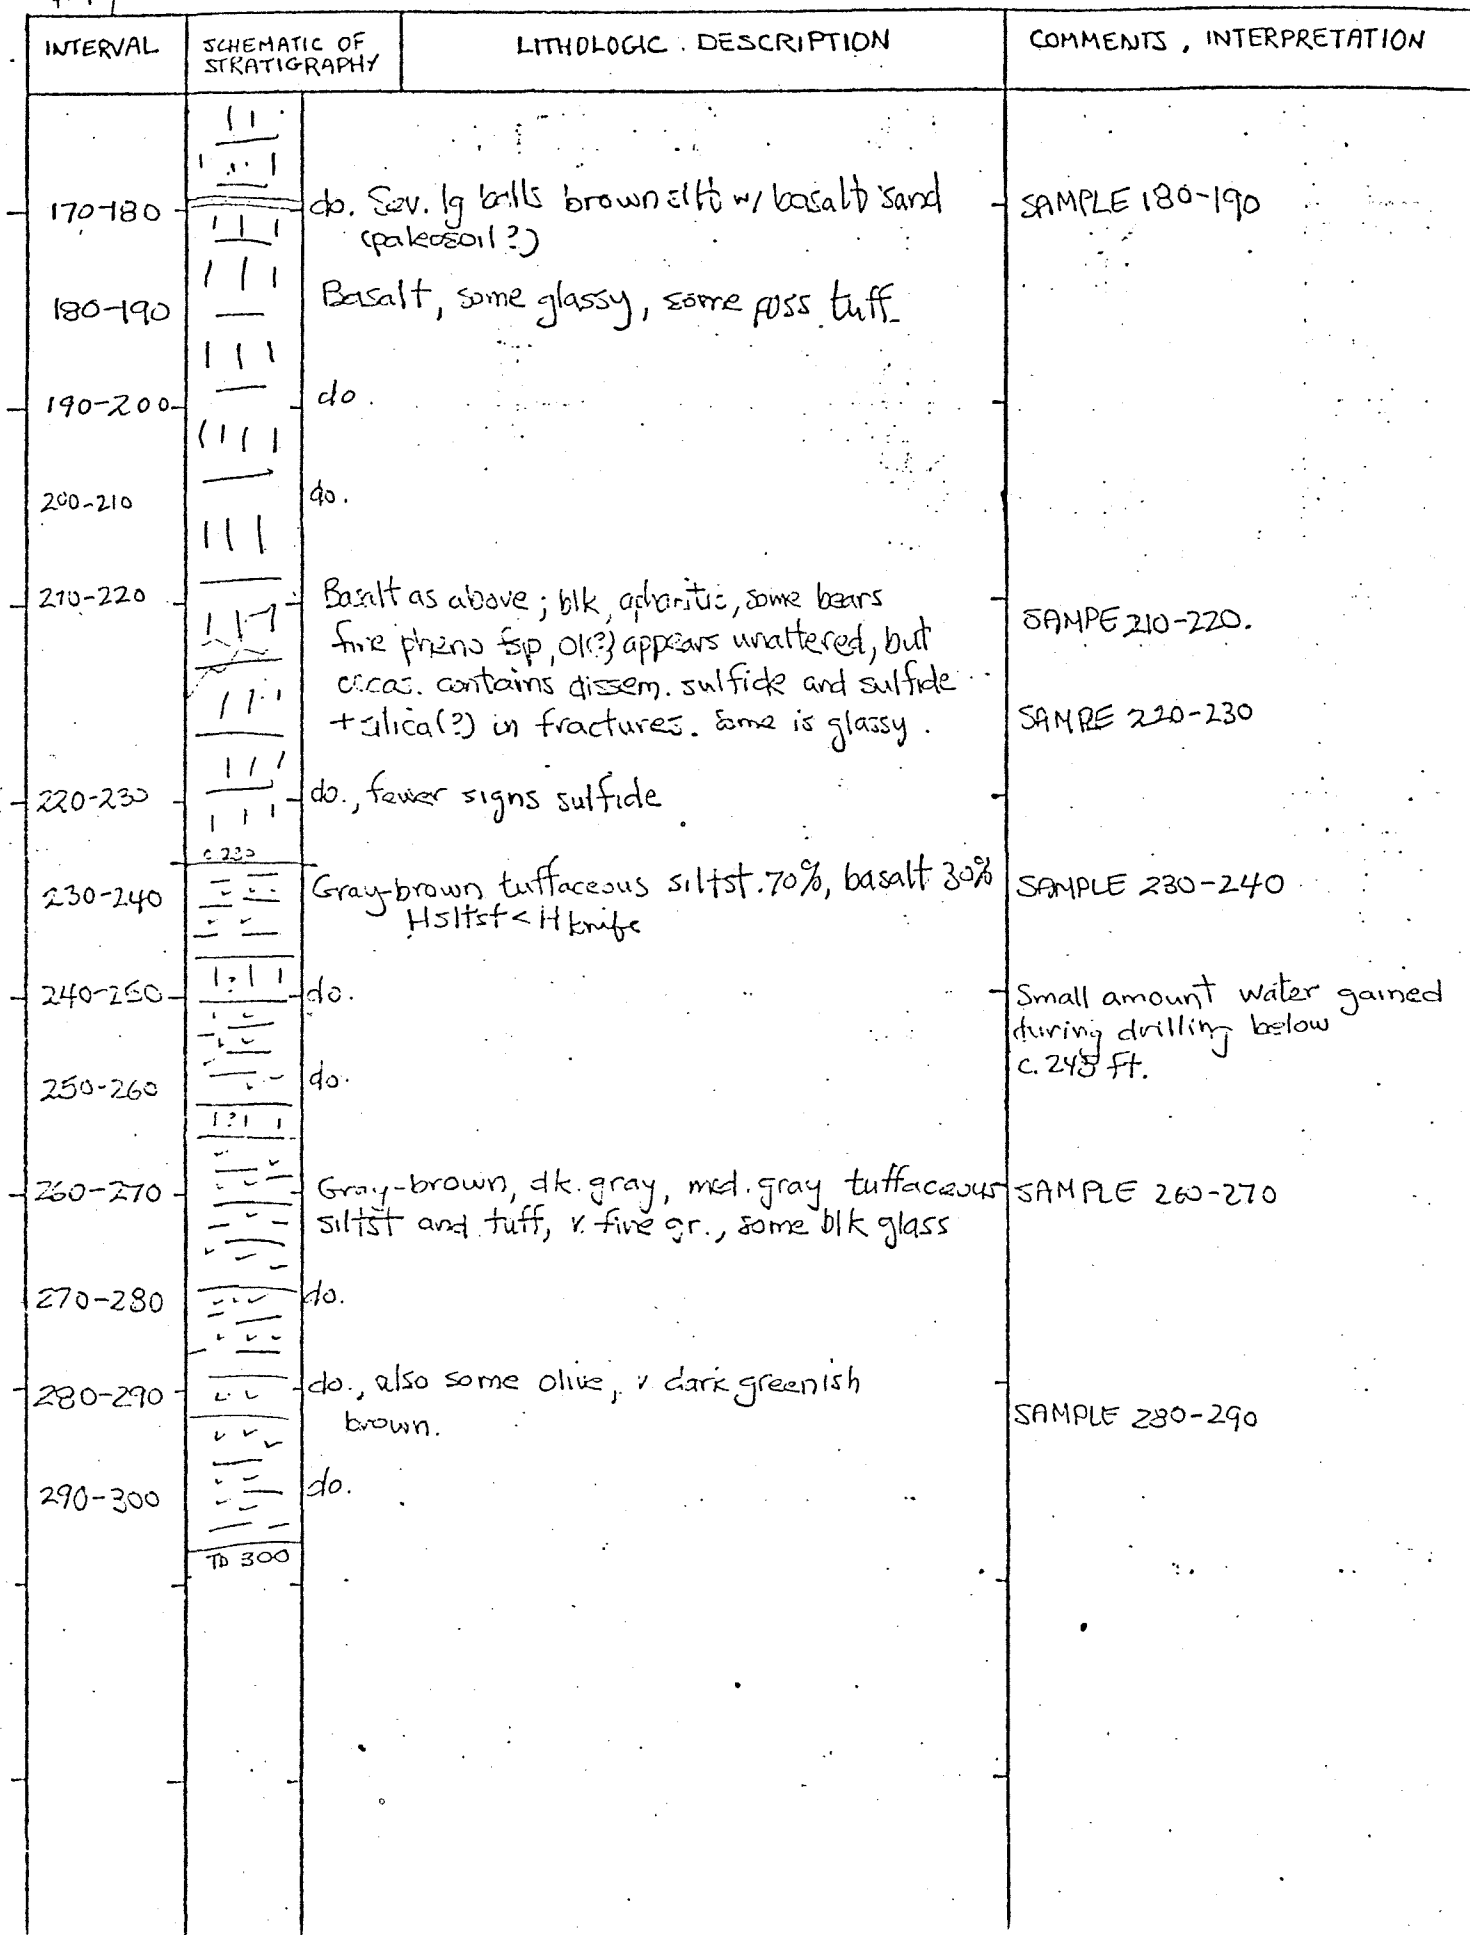 INTERVAL
SCHEMATIC OF
STRATIGRAPHY
LITHOLOGIC DESCRIPTION
COMMENTS, INTERPRETATION
170-180
do. Sev. lg balls brown silt w/ basalt sand
(paleosoil?)
SAMPLE 180-190
180-190
Basalt, some glassy, some poss tuff
190-200
do.
200-210
do.
210-220
Basalt as above; blk, aphanitic, some bears
fine pheno fsp, ol(?) appears unaltered, but
occas. contains dissem. sulfide and sulfide
+ silica(?) in fractures. Some is glassy.
SAMPE 210-220.
SAMPLE 220-230
220-230
do., fewer signs sulfide
c 230
230-240
Gray-brown tuffaceous siltst. 70%, basalt 30%
Hsltst < H knife
SAMPLE 230-240
240-250
do.
Small amount water gained
during drilling below
c. 245 ft.
250-260
do.
260-270
Gray-brown, dk. gray, med. gray tuffaceous
siltst and tuff, v. fine gr., some blk glass
SAMPLE 260-270
270-280
do.
280-290
do., also some olive, v dark greenish
brown.
SAMPLE 280-290
290-300
do.
TD 300